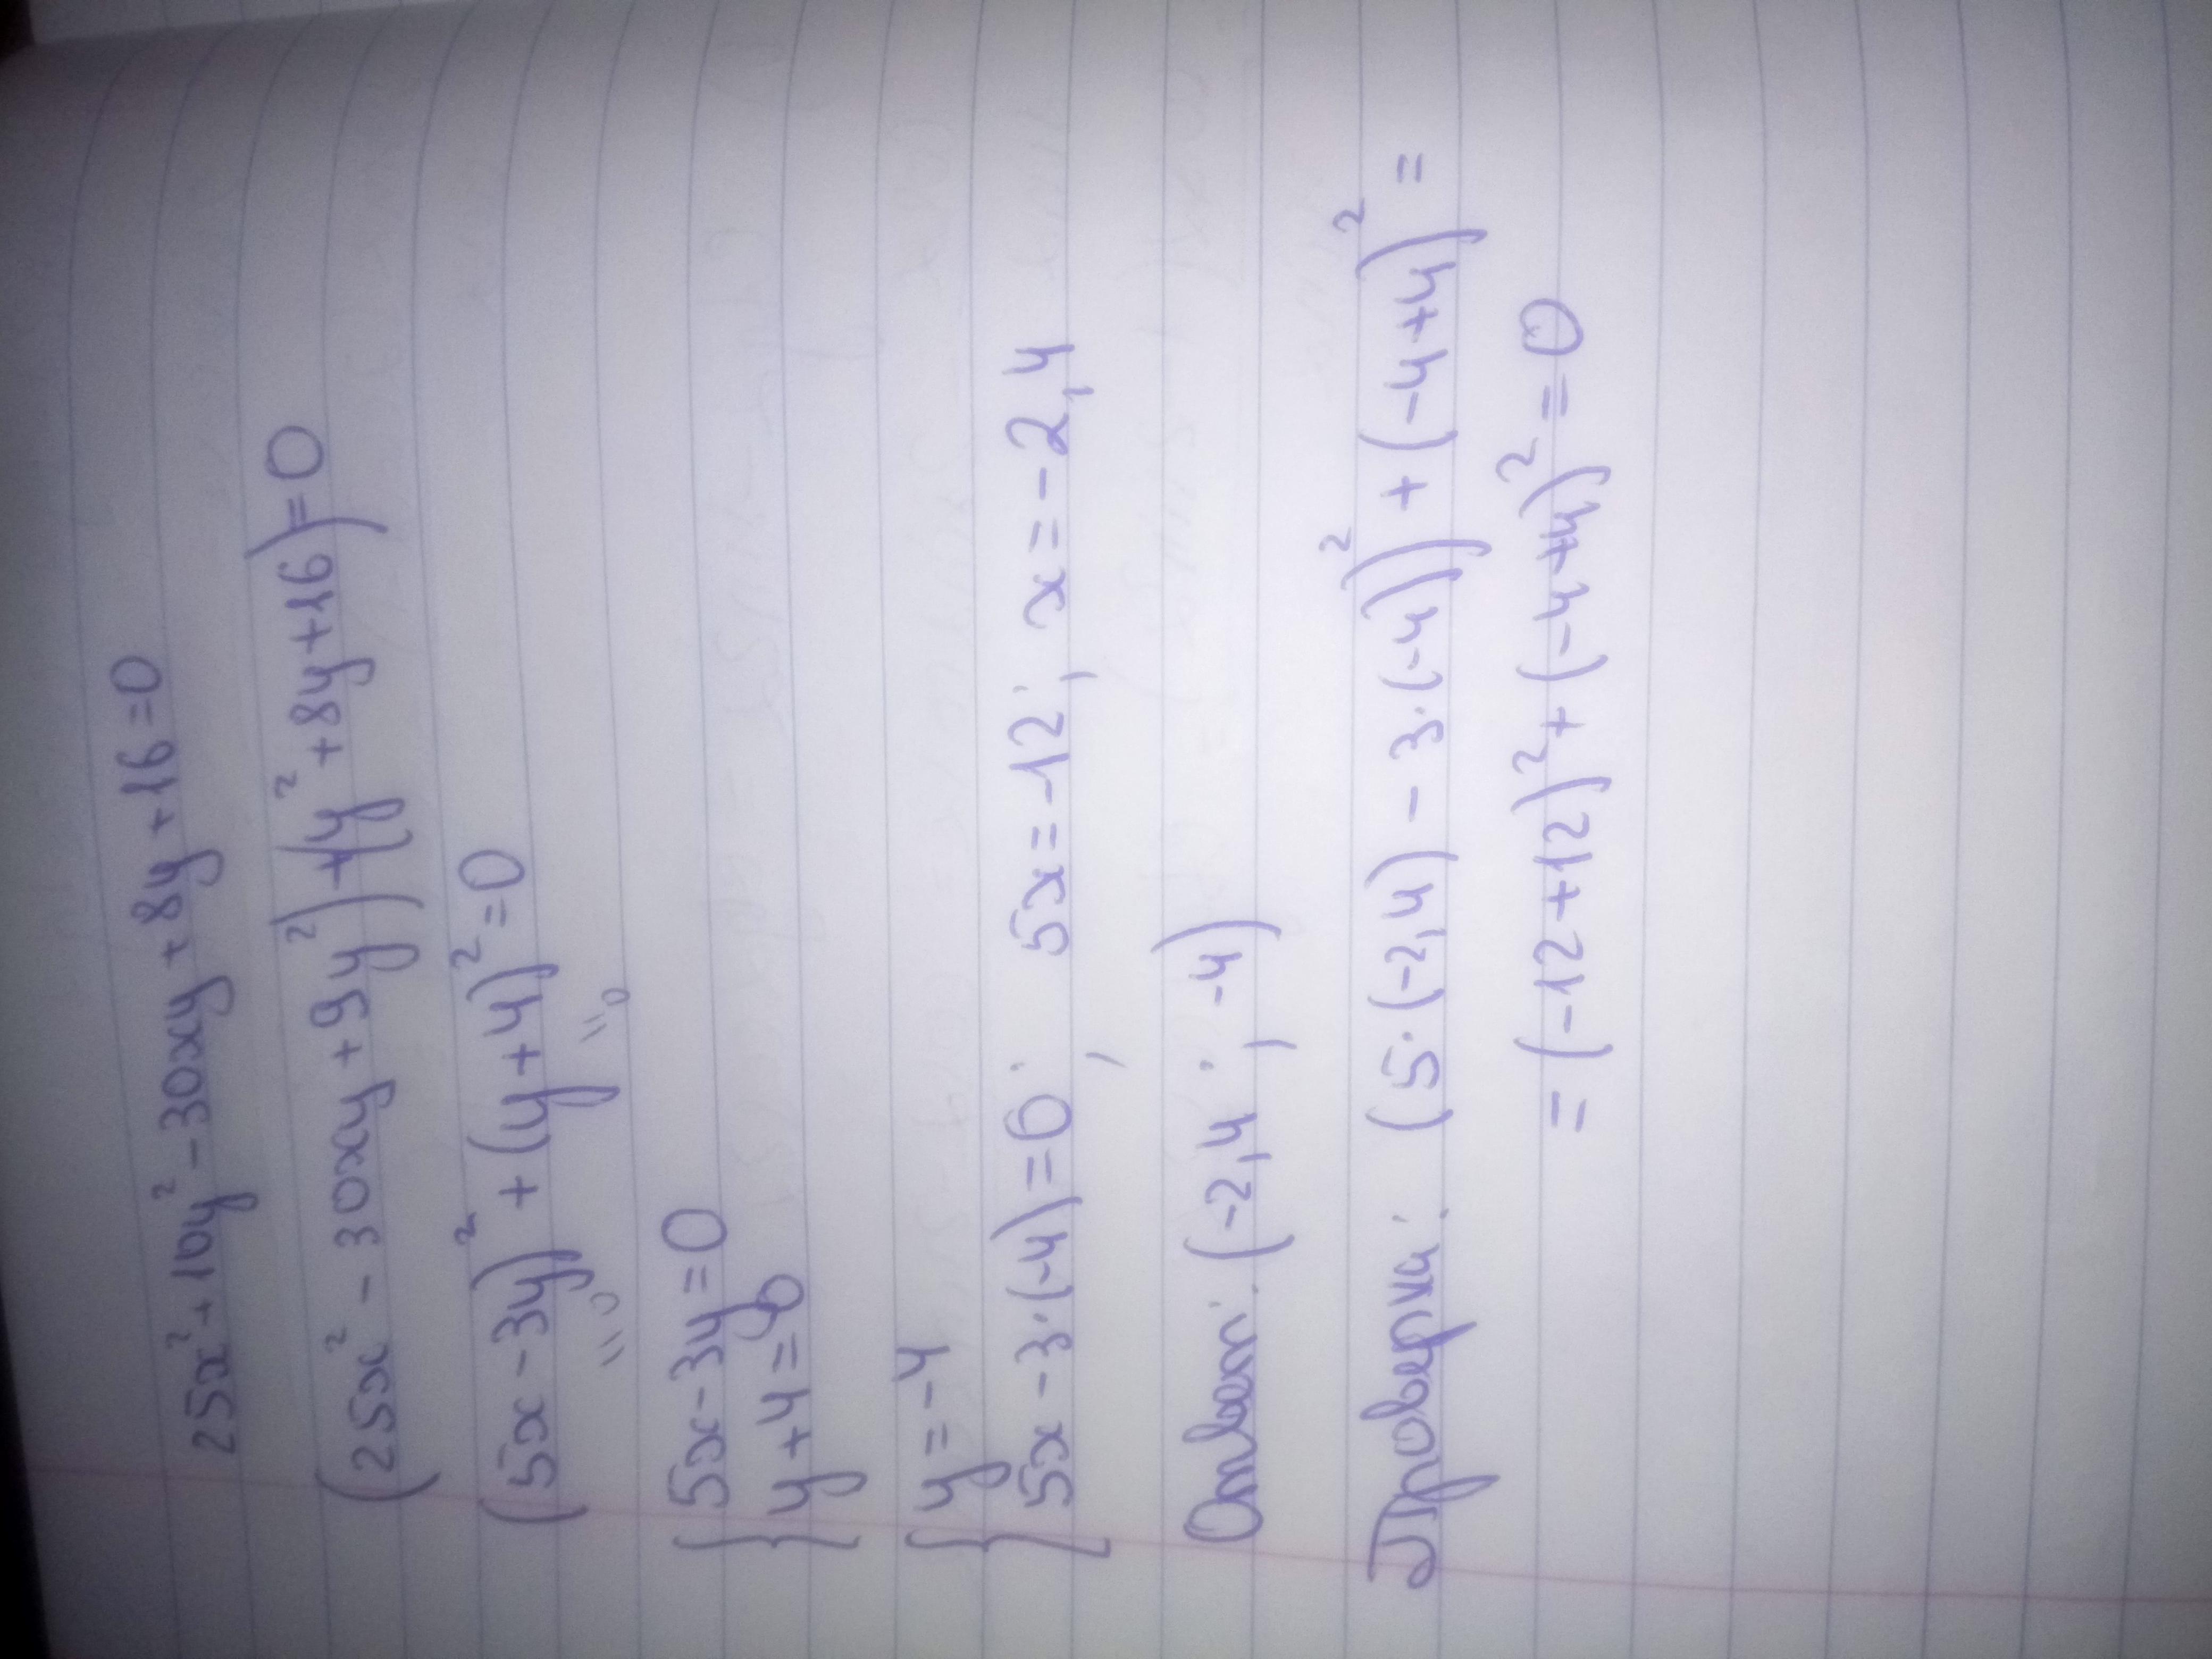 25x² + 10y² - 30xy + 8y + 16 = 0
(25x² - 30xy + 9y²) + (y² + 8y + 16) = 0
(5x - 3y)² + (y + 4)² = 0
"0 "0
{ 5x - 3y = 0
y + 4 = 0
{ y = -4
5x - 3·(-4) = 0; 5x = -12; x = -2,4
Ответ: (-2,4; -4)
Проверка: (5·(-2,4) - 3·(-4))² + (-4+4)² =
= (-12+12)² + (-4+4)² = 0